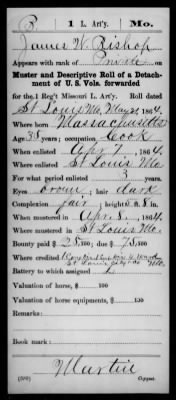 B 1 L. Art'y. Mo.
James W. Bishop
Appears with rank of Private on
Muster and Descriptive Roll of a Detach-
ment of U. S. Vols. forwarded
for the 1 Reg't Missouri L. Art'y. Roll dated
St Louis Mo, May 21, 1864.
Where born Massachusetts
Age 38 years; occupation Cook
When enlisted Apr. 7, 1864.
Where enlisted St Louis Mo
For what period enlisted 3 years.
Eyes brown; hair dark
Complexion fair; height 5 ft. 8 in.
When mustered in Apr. 8, 1864.
Where mustered in St Louis Mo.
Bounty paid $ 25 100; due $ 75 100
Where credited
St Louis Mo
Battery to which assigned L
Valuation of horse, $ 100
Valuation of horse equipments, $ 100
Remarks:
Book mark:
Martin
Copyist.